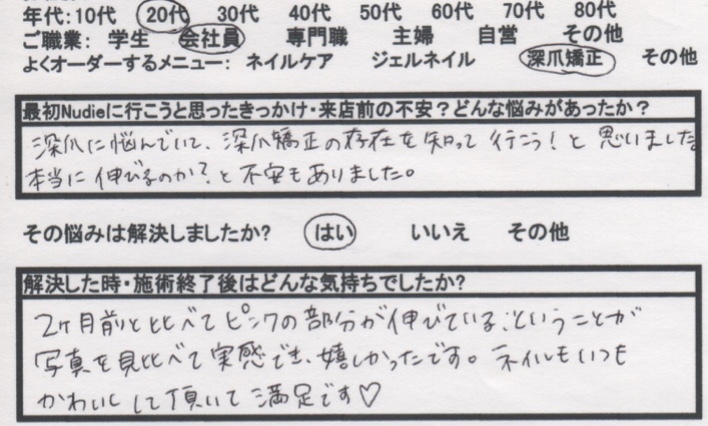 年代:10代 20代 30代 40代 50代 60代 70代 80代
ご職業: 学生 会社員 専門職 主婦 自営 その他
よくオーダーするメニュー: ネイルケア ジェルネイル 深爪矯正 その他
最初Nudieに行こうと思ったきっかけ・来店前の不安?どんな悩みがあったか?
深爪に悩んでいて、深爪矯正の存在を知って行こう!と思いました
本当に伸びるのか?と不安もありました。
その悩みは解決しましたか? はい いいえ その他
解決した時・施術終了後はどんな気持ちでしたか?
2ヶ月前と比べてピンクの部分が伸びている、ということが
写真を見比べて実感でき、嬉しかったです。ネイルもいつも
かわいくして頂いて満足です♡